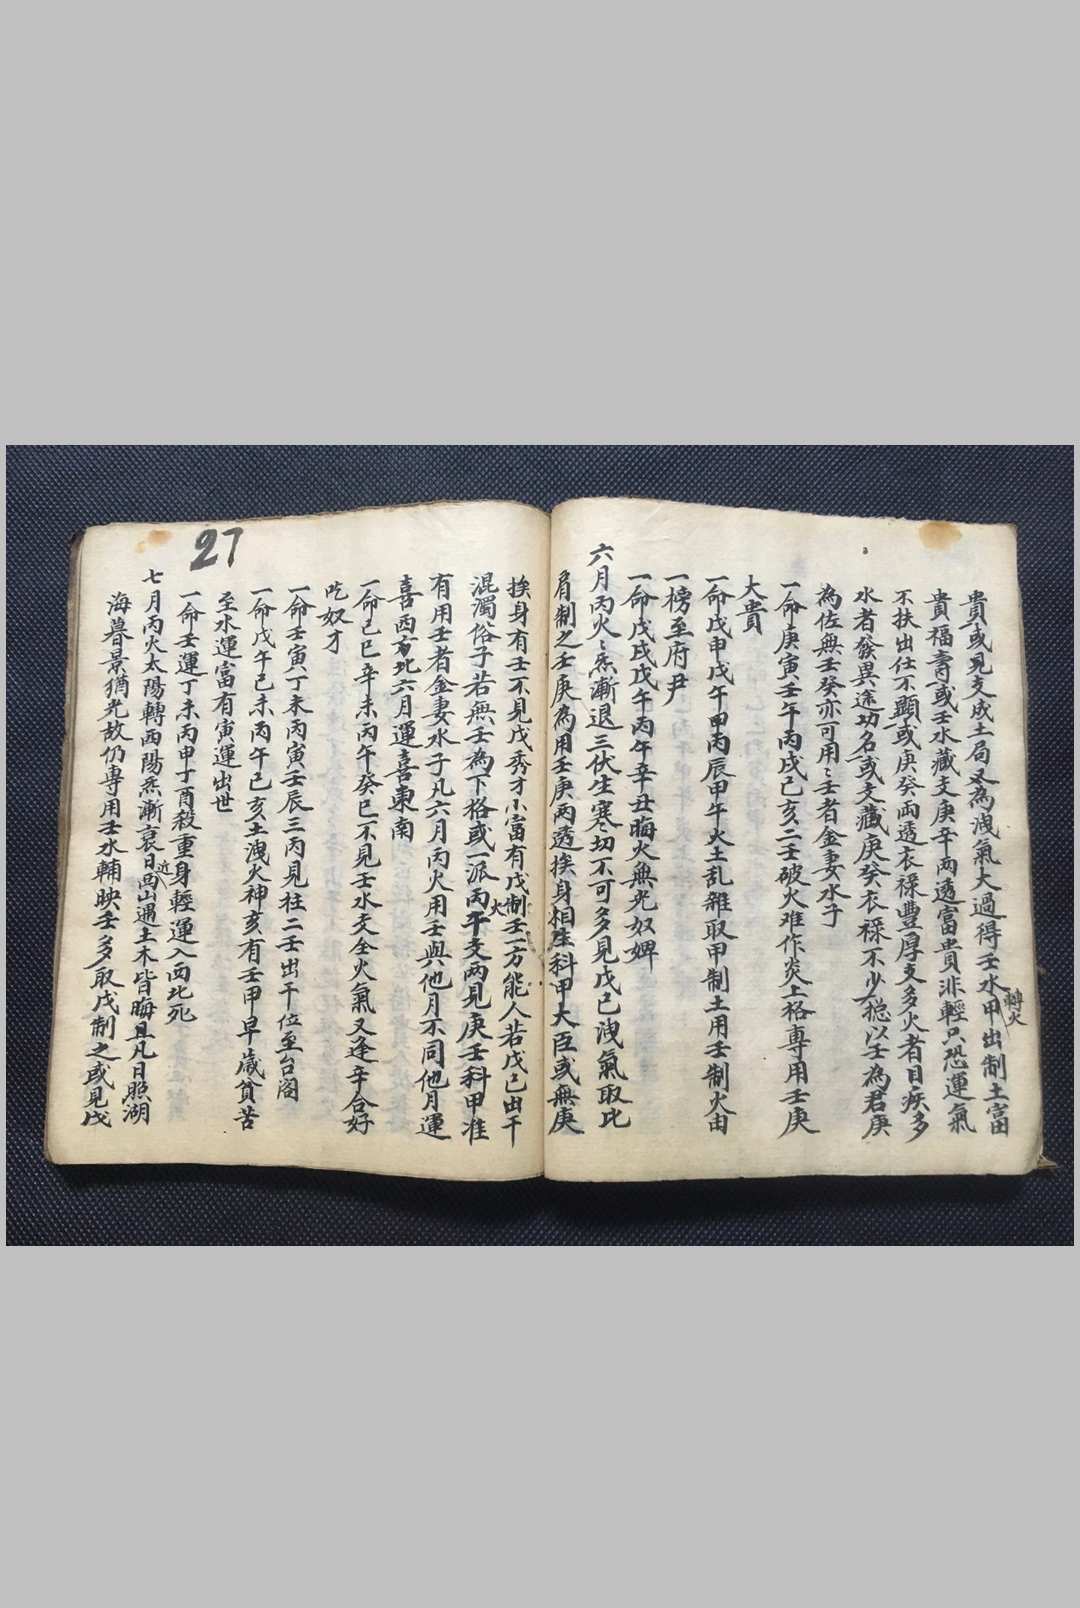 貴或見支成土局又為洩氣大過得壬水甲出制土富
轉火
貴福壽或壬水藏支庚辛両透富貴非輕只恐運氣
不扶出仕不顯或庚癸両透衣禄豐厚支多火者目疾多
水者發異途功名或支藏庚癸衣禄不少總以壬為君庚
為佐無壬癸亦可用〻壬者金妻水子
一命庚寅壬午丙戌己亥二壬破火难作炎上格専用壬庚
大貴
一命戊申戊午甲丙辰甲午火土乱雜取甲制土用壬制火由
一榜至府尹
一命戊戌戊午丙午辛丑晦火無光奴婢
六月丙火〻炁漸退三伏生寒切不可多見戊己洩氣取比
肩制之壬庚為用壬庚両透挨身相生科甲大臣或無庚
挨身有壬不見戊秀才小富有戊制壬一方能人若戊己出干
火
混濁俗子若無壬為下格或一派丙午支両見庚壬科甲准
有用壬者金妻水子凡六月丙火用壬與他月不同他月運
喜西方北六月運喜東南
一命己巳辛未丙午癸巳不見壬水支全火氣又逢辛合好
吃奴才
一命壬寅丁未丙寅壬辰三丙見柱二壬出干位至台阁
一命戊午己未丙午己亥土洩火神亥有壬甲早歲貧苦
至水運富有寅運出世
27
一命壬運丁未丙申丁酉殺重身輕運入西北死
七月丙火太陽轉西陽炁漸衰日近西山遇土木皆晦且凡日照湖
海暮景猶光故仍専用壬水輔映壬多取戊制之或見戊